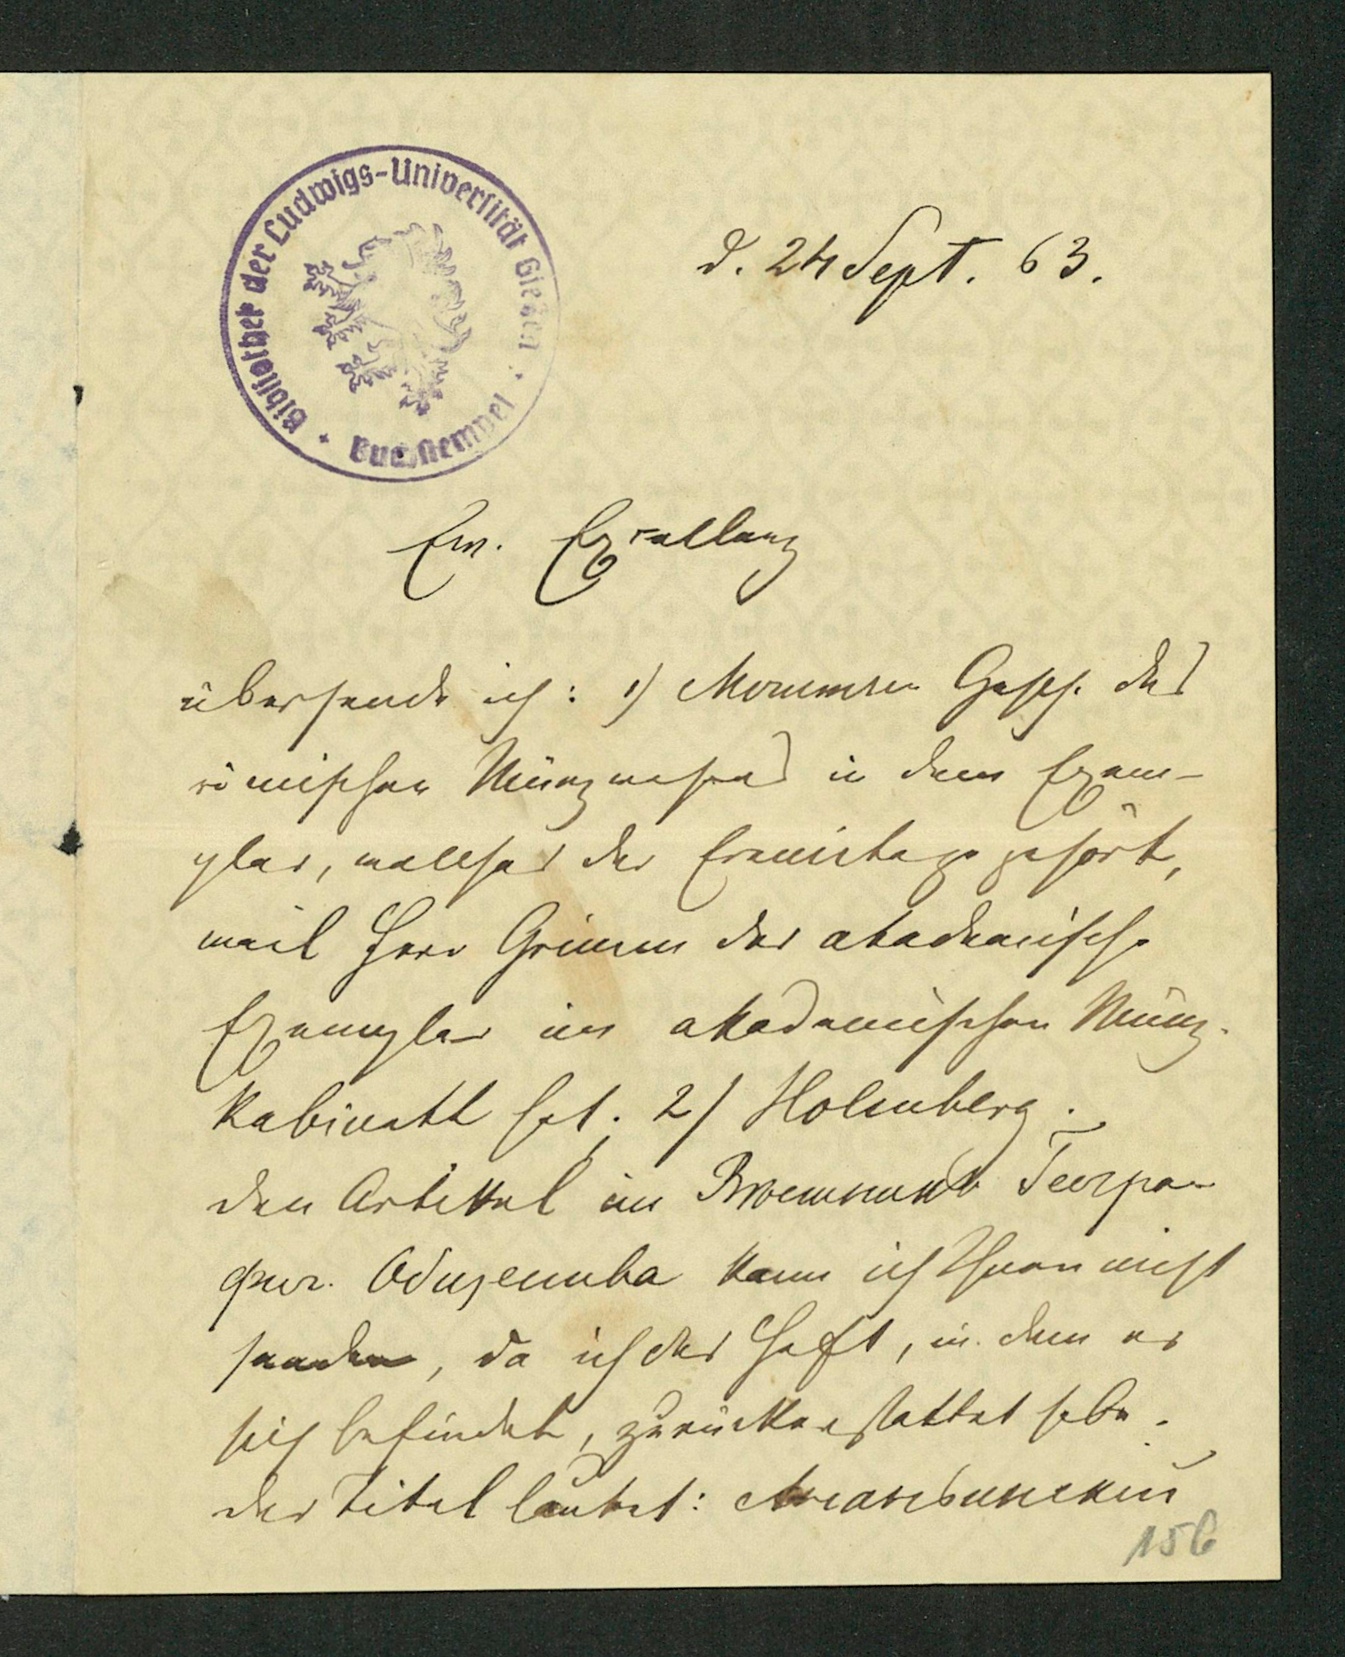 Bibliothek der Ludwigs-Universität Gießen
Buchstempel
d. 24 Sept. 63.
Ew. Excellenz
übersende ich: 1) Mommsen Gesch. des
römischen Münzwesens in dem Exem-
plar, welches der Eremitage gehört,
weil Herr Grimm das akademische
Exemplar im akademischen Münz-
kabinett hat. 2) Holmberg.
den Artikel im Вѣстникѣ Геогра-
фич. Общества kann ich Ihnen nicht
senden, da ich das Heft, in dem er
sich befindet, zurückerstattet habe.
der Titel lautet:
156